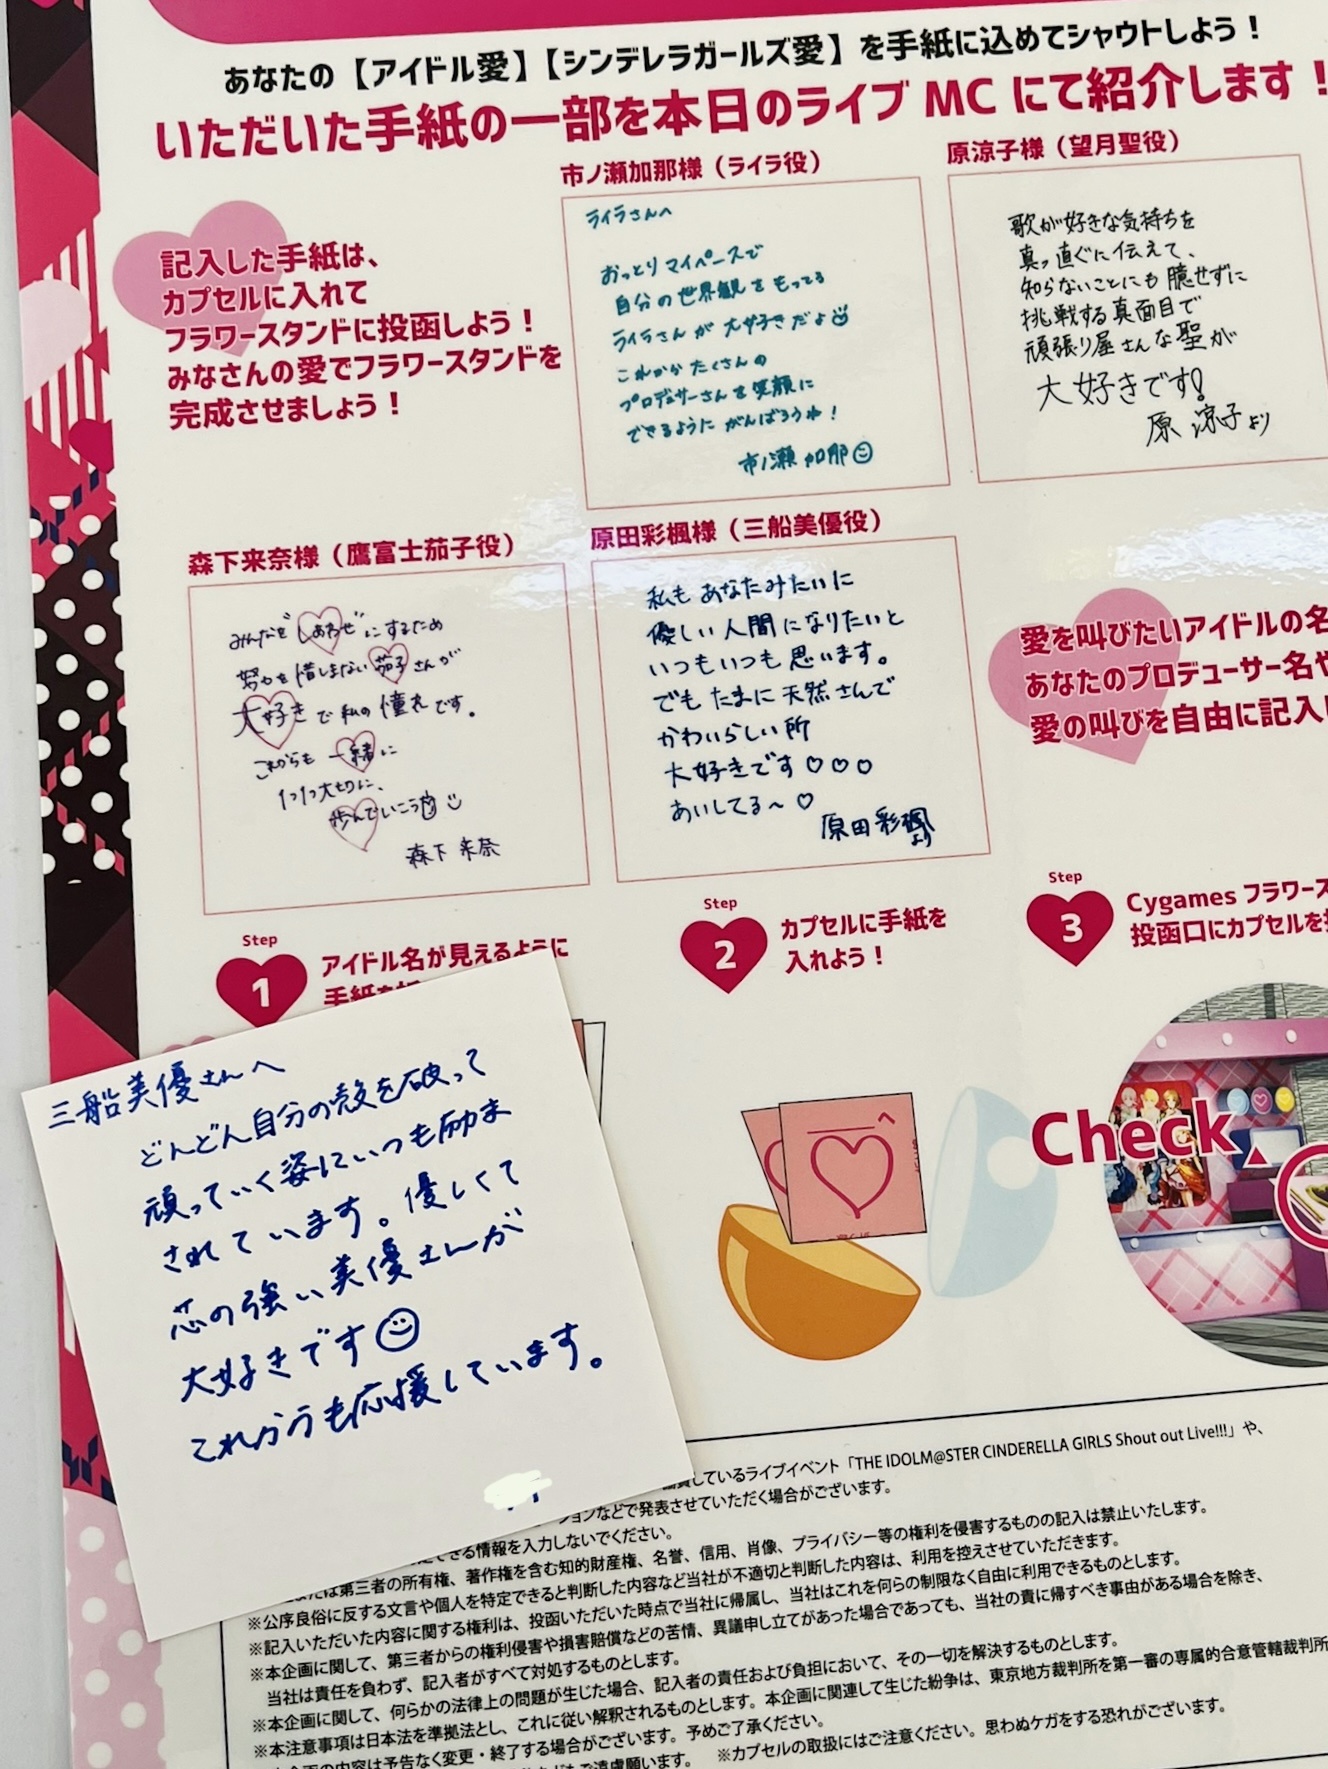 あなたの【アイドル愛】【シンデレラガールズ愛】を手紙に込めてシャウトしよう！
いただいた手紙の一部を本日のライブ MC にて紹介します！
記入した手紙は、
カプセルに入れて
フラワースタンドに投函しよう！
みなさんの愛でフラワースタンドを
完成させましょう！
市ノ瀬加那様（ライラ役）
ライラさんへ
おっとりマイペースで
自分の世界観をもってる
ライラさんが大好きだよ
これからたくさんの
プロデューサーさんを笑顔に
できるようにがんばろうね！
市ノ瀬加那
原涼子様（望月聖役）
歌が好きな気持ちを
真っ直ぐに伝えて、
知らないことにも臆せずに
挑戦する真面目で
頑張り屋さんな聖が
大好きです!
原涼子より
森下来奈様（鷹富士茄子役）
みんなを"しあわせ"にするため
努力を惜しまない茄子さんが
大好きで私の憧れです。
これからも一緒に
1つ1つ大切に、
歩んでいこう
森下来奈
原田彩楓様（三船美優役）
私もあなたみたいに
優しい人間になりたいと
いつもいつも思います。
でもたまに天然さんで
かわいらしい所
大好きです♡♡♡
あいしてる〜♡
原田彩楓
より
愛を叫びたいアイドルの名
あなたのプロデューサー名や
愛の叫びを自由に記入し
Step
1
アイドル名が見えるように
手紙を
Step
2
カプセルに手紙を
入れよう！
Step
3
Cygames フラワース
投函口にカプセルを
三船美優さんへ
どんどん自分の殻を破って
頑っていく姿にいつも励ま
されています。優しくて
芯の強い美優さんが
大好きです
これからも応援しています。
へ
Check
しているライブイベント「THE IDOLM@STER CINDERELLA GIRLS Shout out Live!!!」や、
ションなどで発表させていただく場合がございます。
できる情報を入力しないでください。
は第三者の所有権、著作権を含む知的財産権、名誉、信用、肖像、プライバシー等の権利を侵害するものの記入は禁止いたします。
※公序良俗に反する文言や個人を特定できると判断した内容など当社が不適切と判断した内容は、利用を控えさせていただきます。
※記入いただいた内容に関する権利は、投函いただいた時点で当社に帰属し、当社はこれを何らの制限なく自由に利用できるものとします。
※本企画に関して、第三者からの権利侵害や損害賠償などの苦情、異議申し立てがあった場合であっても、当社の責に帰すべき事由がある場合を除き、
当社は責任を負わず、記入者がすべて対処するものとします。
※本企画に関して、何らかの法律上の問題が生じた場合、記入者の責任および負担において、その一切を解決するものとします。
※本注意事項は日本法を準拠法とし、これに従い解釈されるものとします。本企画に関連して生じた紛争は、東京地方裁判所を第一審の専属的合意管轄裁判所
の内容は予告なく変更・終了する場合がございます。予めご了承ください。
ご遠慮願います。 ※カプセルの取扱にはご注意ください。思わぬケガをする恐れがございます。